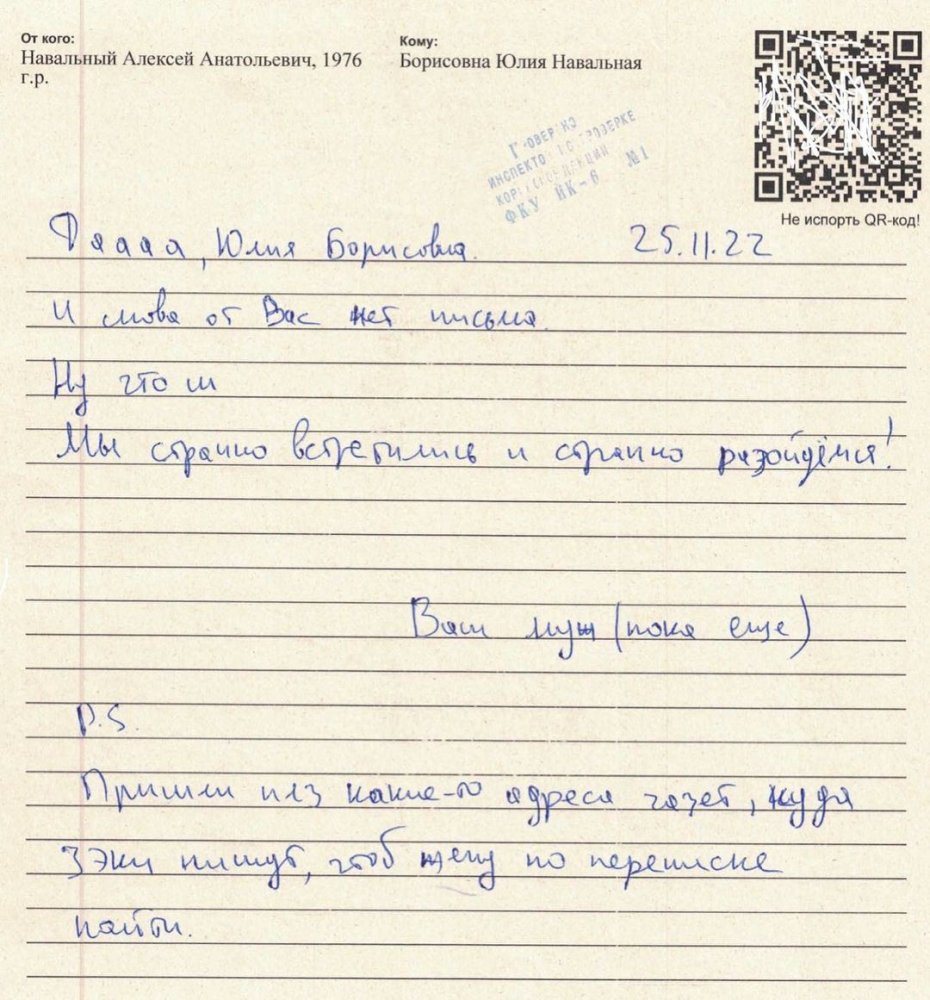 От кого:
Навальный Алексей Анатольевич, 1976
г.р.
Кому:
Борисовна Юлия Навальная
ПРОВЕРЕНО
ИНСПЕКТОР ПО ПРОВЕРКЕ
КОРРЕСПОНДЕНЦИИ №1
ФКУ ИК-6
Не испорть QR-код!
Дяааа, Юлия Борисовна. 25.11.22
И снова от Вас нет письма.
Ну что ш
Мы странно встретились и странно разойдёмся!
Ваш муж (пока еще)
P.S.
Пришли плз какие-то адреса газет, куда
зэки пишут, чтоб жену по переписке
найти.